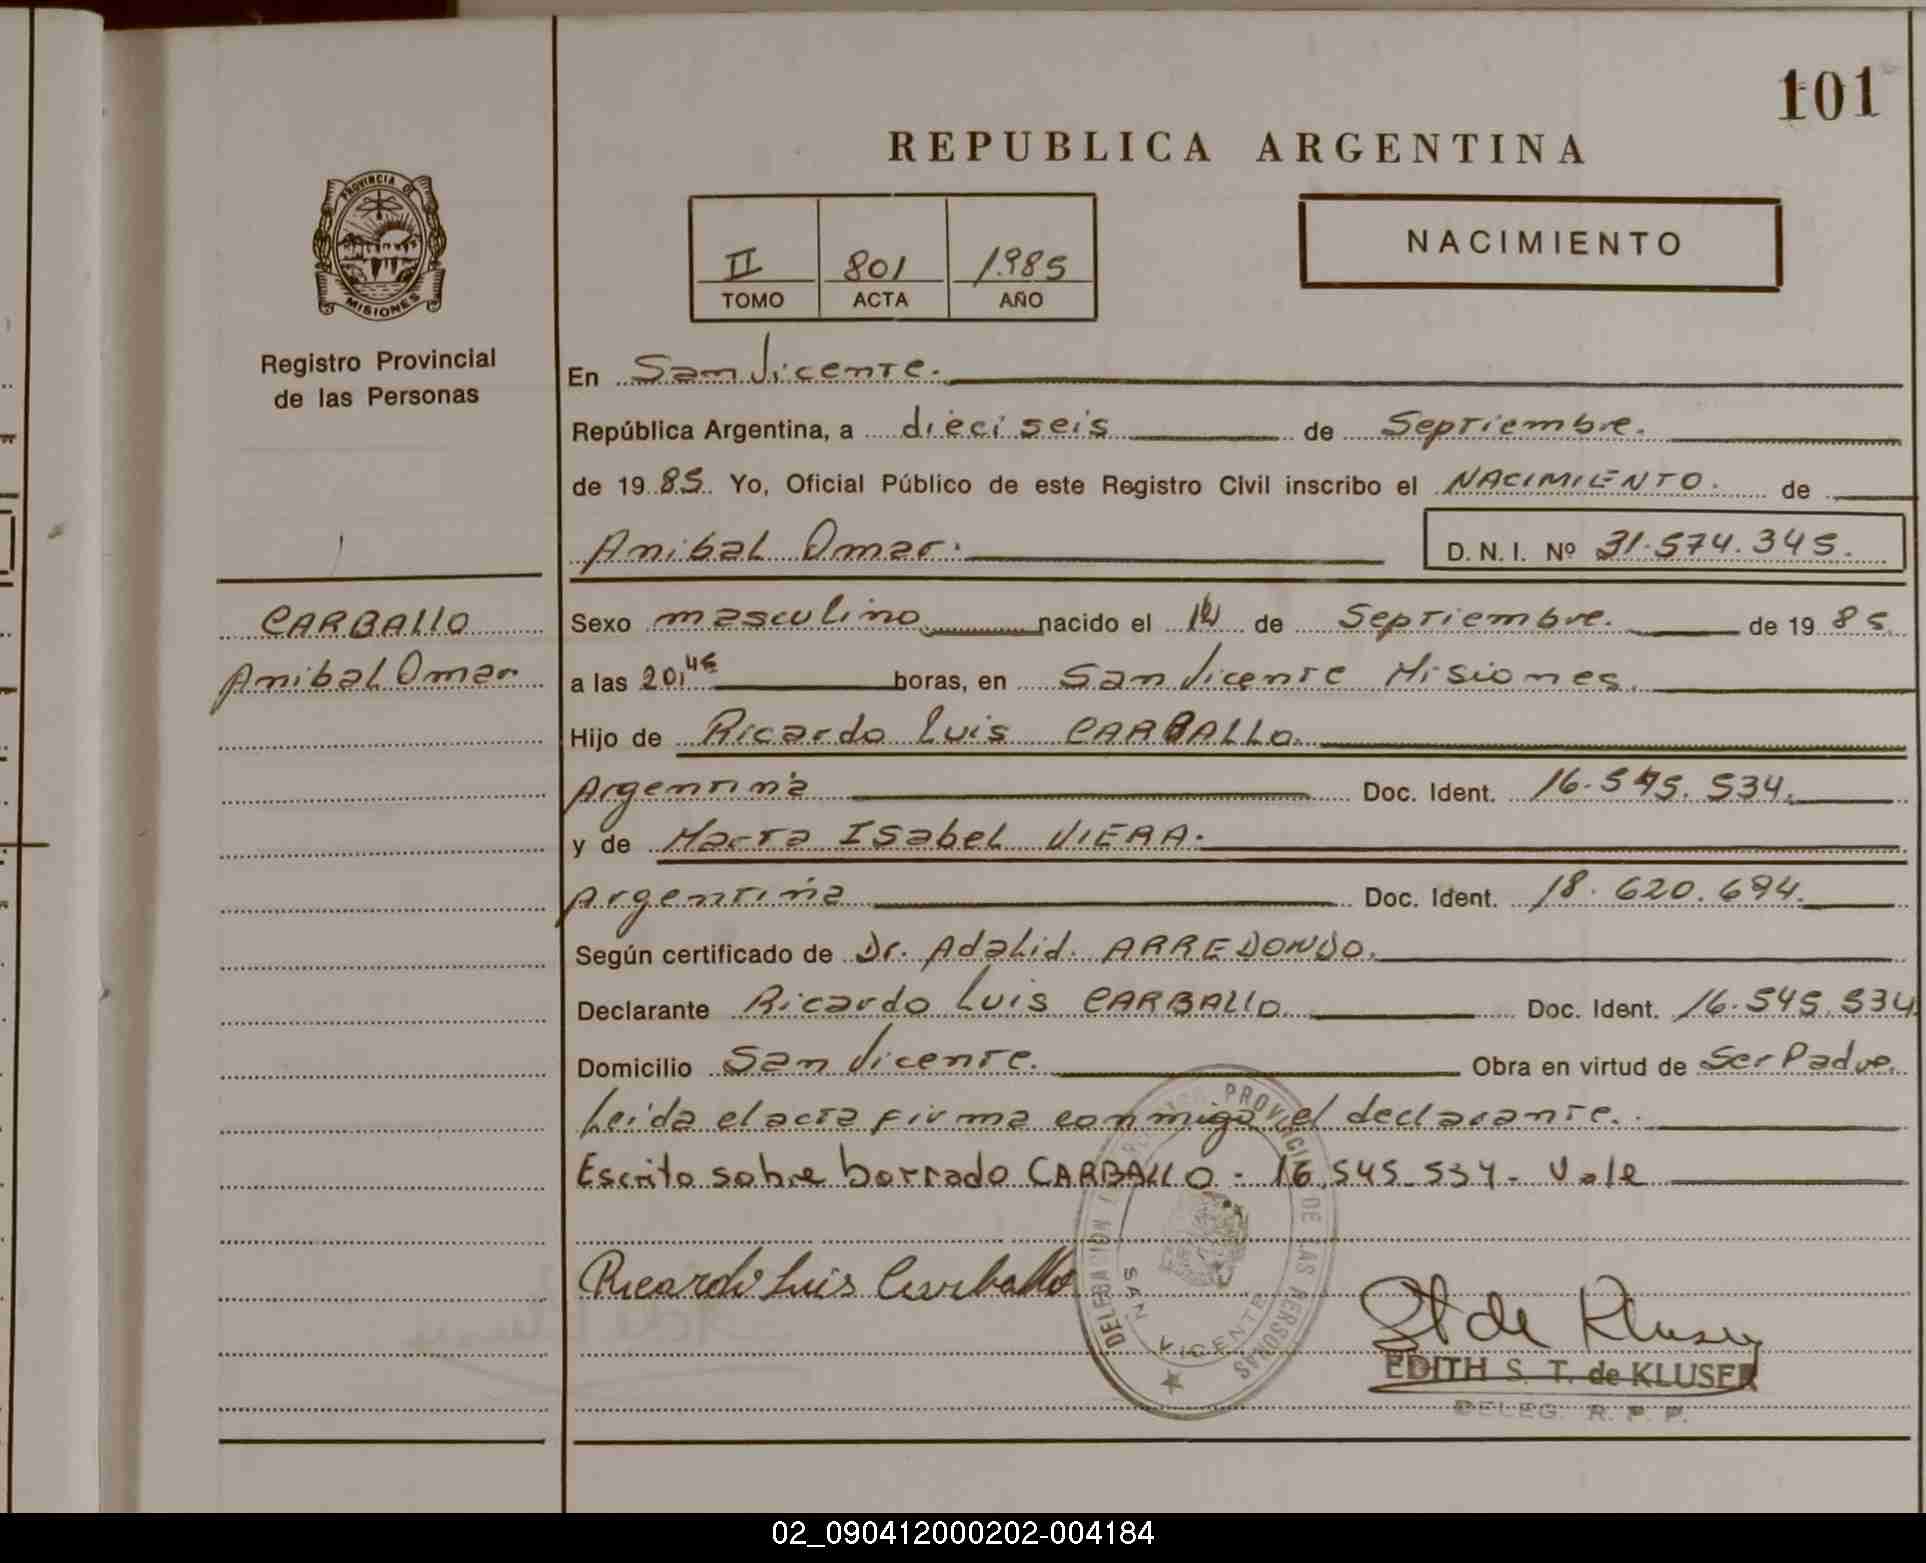 101
REPUBLICA ARGENTINA
PROVINCIA DE
MISIONES
Registro Provincial
de las Personas
II 801 1985
TOMO ACTA AÑO
NACIMIENTO
En San Vicente.
República Argentina, a dieciseis de Septiembre.
de 1985. Yo, Oficial Público de este Registro Civil inscribo el NACIMIENTO. de
Anibal Omar. D. N. I. Nº 31.574.345.
CARBALLO
Anibal Omar
Sexo masculino nacido el de Septiembre. de 1985
a las 20,45 horas, en San Vicente Misiones.
Hijo de Ricardo Luis CARBALLO.
Argentina Doc. Ident. 16.545.534.
y de Marta ISabel VIERA.
Argentina Doc. Ident. 18.620.694.
Según certificado de Dr. Adalid. ARREDONDO.
Declarante Ricardo Luis CARBALLO. Doc. Ident. 16.545.534
Domicilio San Vicente. Obra en virtud de Ser Padre.
Leida el acta firma conmigo el declarante.
Escrito sobre borrado CARBALLO - 16.545.534 - Vale
Ricardo Luis Carballo
DELEGACION PROVINCIAL DE LAS PERSONAS
SAN VICENTE
St de Kluser
EDITH S. T. de KLUSER
DELEG. R. P. P.
02_090412000202-004184